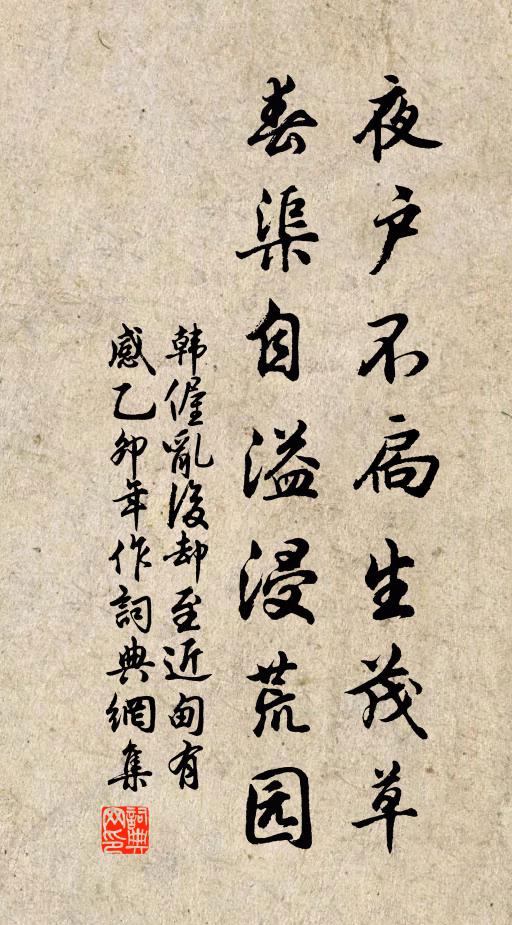 夜户不扃生茂草
春渠自溢浸荒园
韩偓亂後却至近甸有
感乙卯年作詞典網集
詞典
网印